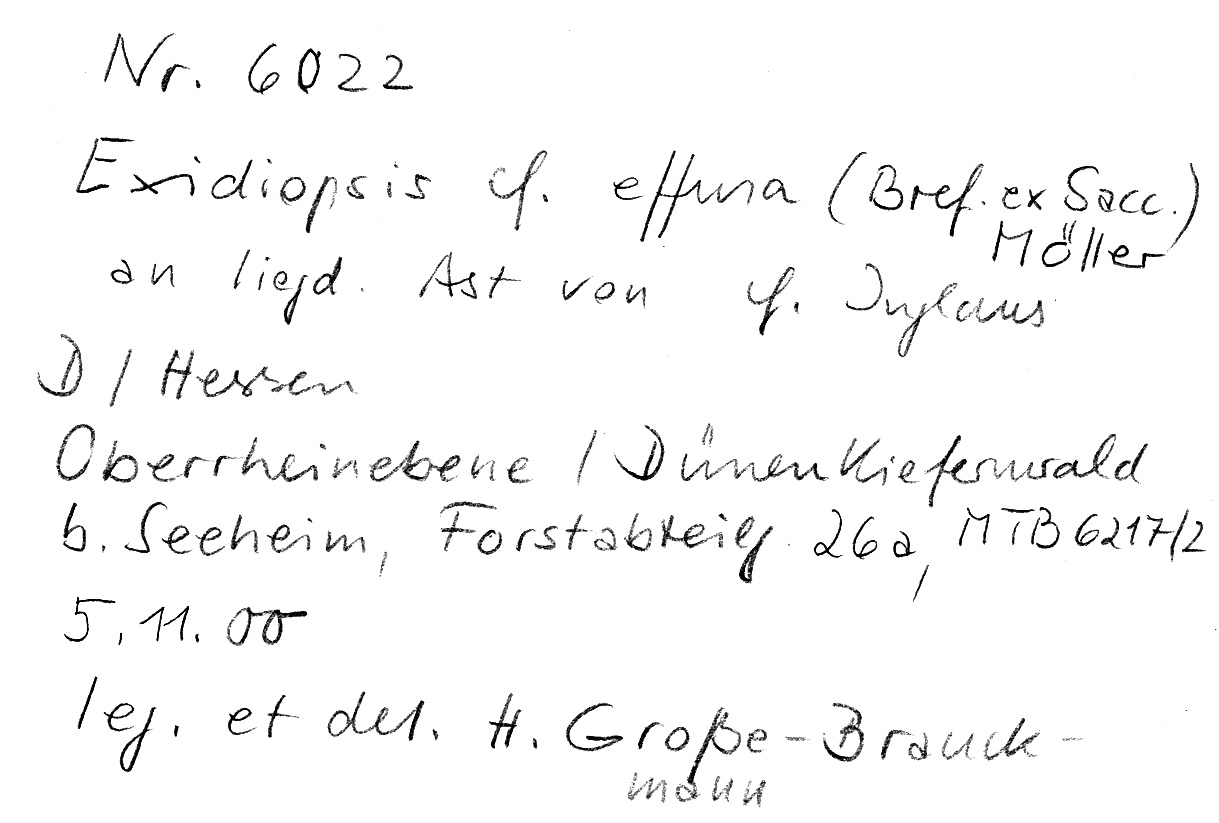 Nr. 6022
Exidiopsis cf. effusa (Bref. ex Sacc.)
Möller
an liegd. Ast von cf. Juglans
D / Hessen
Oberrheinebene / DünenKiefernwald
b. Seeheim, Forstabteilg. 26a, MTB 6217/2
5.11.00
leg. et det. H. Große-Brauck-
mann